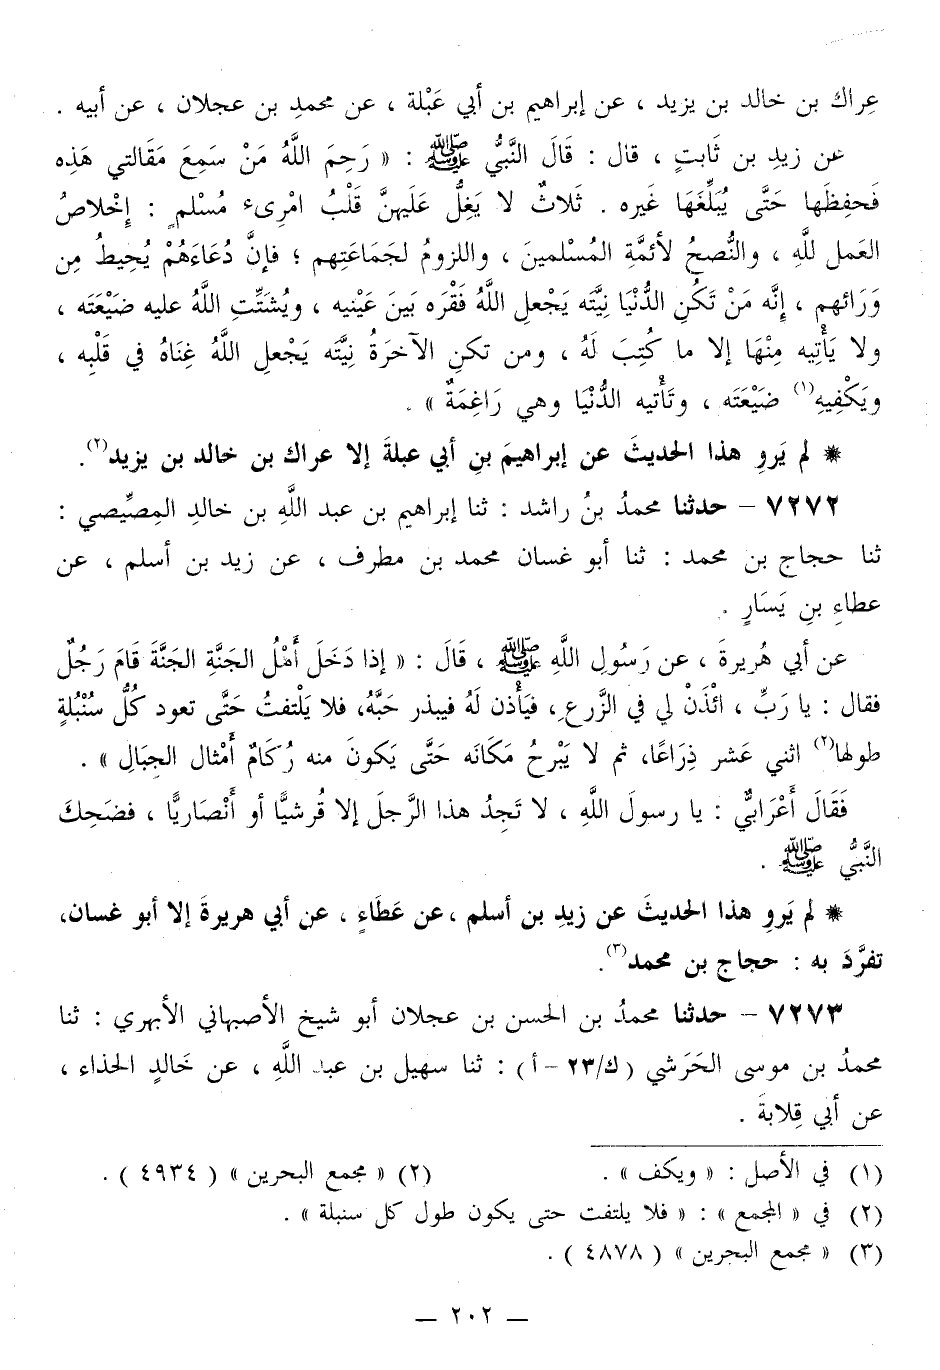 عِراك بن خالد بن يزيد ، عن إبراهيم بن أبي عَبْلة ، عن محمدِ بن عجلان ، عن أبيه .
عن زيدِ بن ثَابتٍ ، قال : قَالَ النَّبيُّ ﷺ : « رَحِمَ اللَّهُ مَنْ سَمِعَ مَقَالتي هَذِه
فَحفِظَها حَتَّى يُبَلِّغَهَا غَيره . ثَلَاثٌ لا يَغِلُّ عَلَيهنَّ قَلْبُ امْرِىءٍ مُسْلمٍ : إِخْلاصُ
العَمل للَّهِ ، والنُّصحُ لأئمَّةِ المُسْلمينَ ، واللزومُ لجَمَاعَتِهم ؛ فإنَّ دُعَاءَهُمْ يُحِيطُ مِن
وَرَائهم ، إنَّه مَنْ تَكُنِ الدُّنْيَا نِيَّتَه يَجْعلِ اللَّهُ فَقْرَه بَينَ عَيْنيه ، ويُشَتِّتِ اللَّهُ عليه ضَيْعَتَه ،
ولا يَأْتِيه مِنْهَا إلا ما كُتِبَ لَهُ ، ومن تكنِ الآخرَةُ نِيَّتَه يَجْعلِ اللَّهُ غِنَاهُ في قَلْبِه ،
ويَكْفِيهِ(١) ضَيْعَتَه ، وتَأتيه الدُّنْيَا وهي رَاغِمَةٌ » .
* لم يَروِ هذا الحديثَ عن إبراهيمَ بنِ أبي عبلةَ إلا عراك بن خالد بن يزيد(٢).
٧٢٧٢ – حدثنا محمدُ بنُ راشد : ثنا إبراهيم بن عبد اللَّهِ بن خالدِ المِصِّيصي :
ثنا حجاج بن محمد : ثنا أبو غسان محمد بن مطرف ، عن زيد بن أسلم ، عن
عطاءِ بنِ يَسَارٍ .
عن أبي هُريرةَ ، عن رَسُولِ اللَّهِ ﷺ ، قَالَ : « إذا دَخَلَ أَهْلُ الجَنَّةِ الجَنَّةَ قَامَ رَجُلٌ
فقال : يا رَبِّ ، ائْذَنْ لي في الزَّرعِ، فَيَأْذن لَهُ فيبذر حَبَّهُ، فلا يَلْتفتُ حَتَّى تعود كُلُّ سُنْبُلةٍ
طولها(٢) اثني عَشر ذِرَاعًا، ثم لا يَبْرحُ مَكَانَه حَتَّى يَكونَ منه رُكَامٌ أَمْثال الجِبَالِ » .
فَقَالَ أَعْرَابيٌّ : يا رسولَ اللَّهِ ، لا تَجِدُ هذا الرَّجلَ إلا قُرشيًّا أو أَنْصَاريًّا ، فضَحِكَ
النَّبيُّ ﷺ .
* لم يَروِ هذا الحديثَ عن زيدِ بن أسلم ،عن عَطَاءٍ ، عن أبي هريرةَ إلا أبو غسان،
تفرَّدَ به : حجاج بن محمد(٣).
٧٢٧٣ – حدثنا محمدُ بن الحسن بن عجلان أبو شيخ الأصبهاني الأبهري : ثنا
محمدُ بن موسى الحَرَشي ( ك/٢٣ – أ ) : ثنا سهيل بن عبد اللَّهِ ، عن خَالدٍ الحذاء ،
عن أبي قِلابةَ .
(١) في الأصل : « ويكف » . (٢) « مجمع البحرين » ( ٤٩٣٤ ) .
(٢) في « المجمع » : « فلا يلتفت حتى يكون طول كل سنبلة » .
(٣) « مجمع البحرين » ( ٤٨٧٨ ) .
— ٢٠٢ —